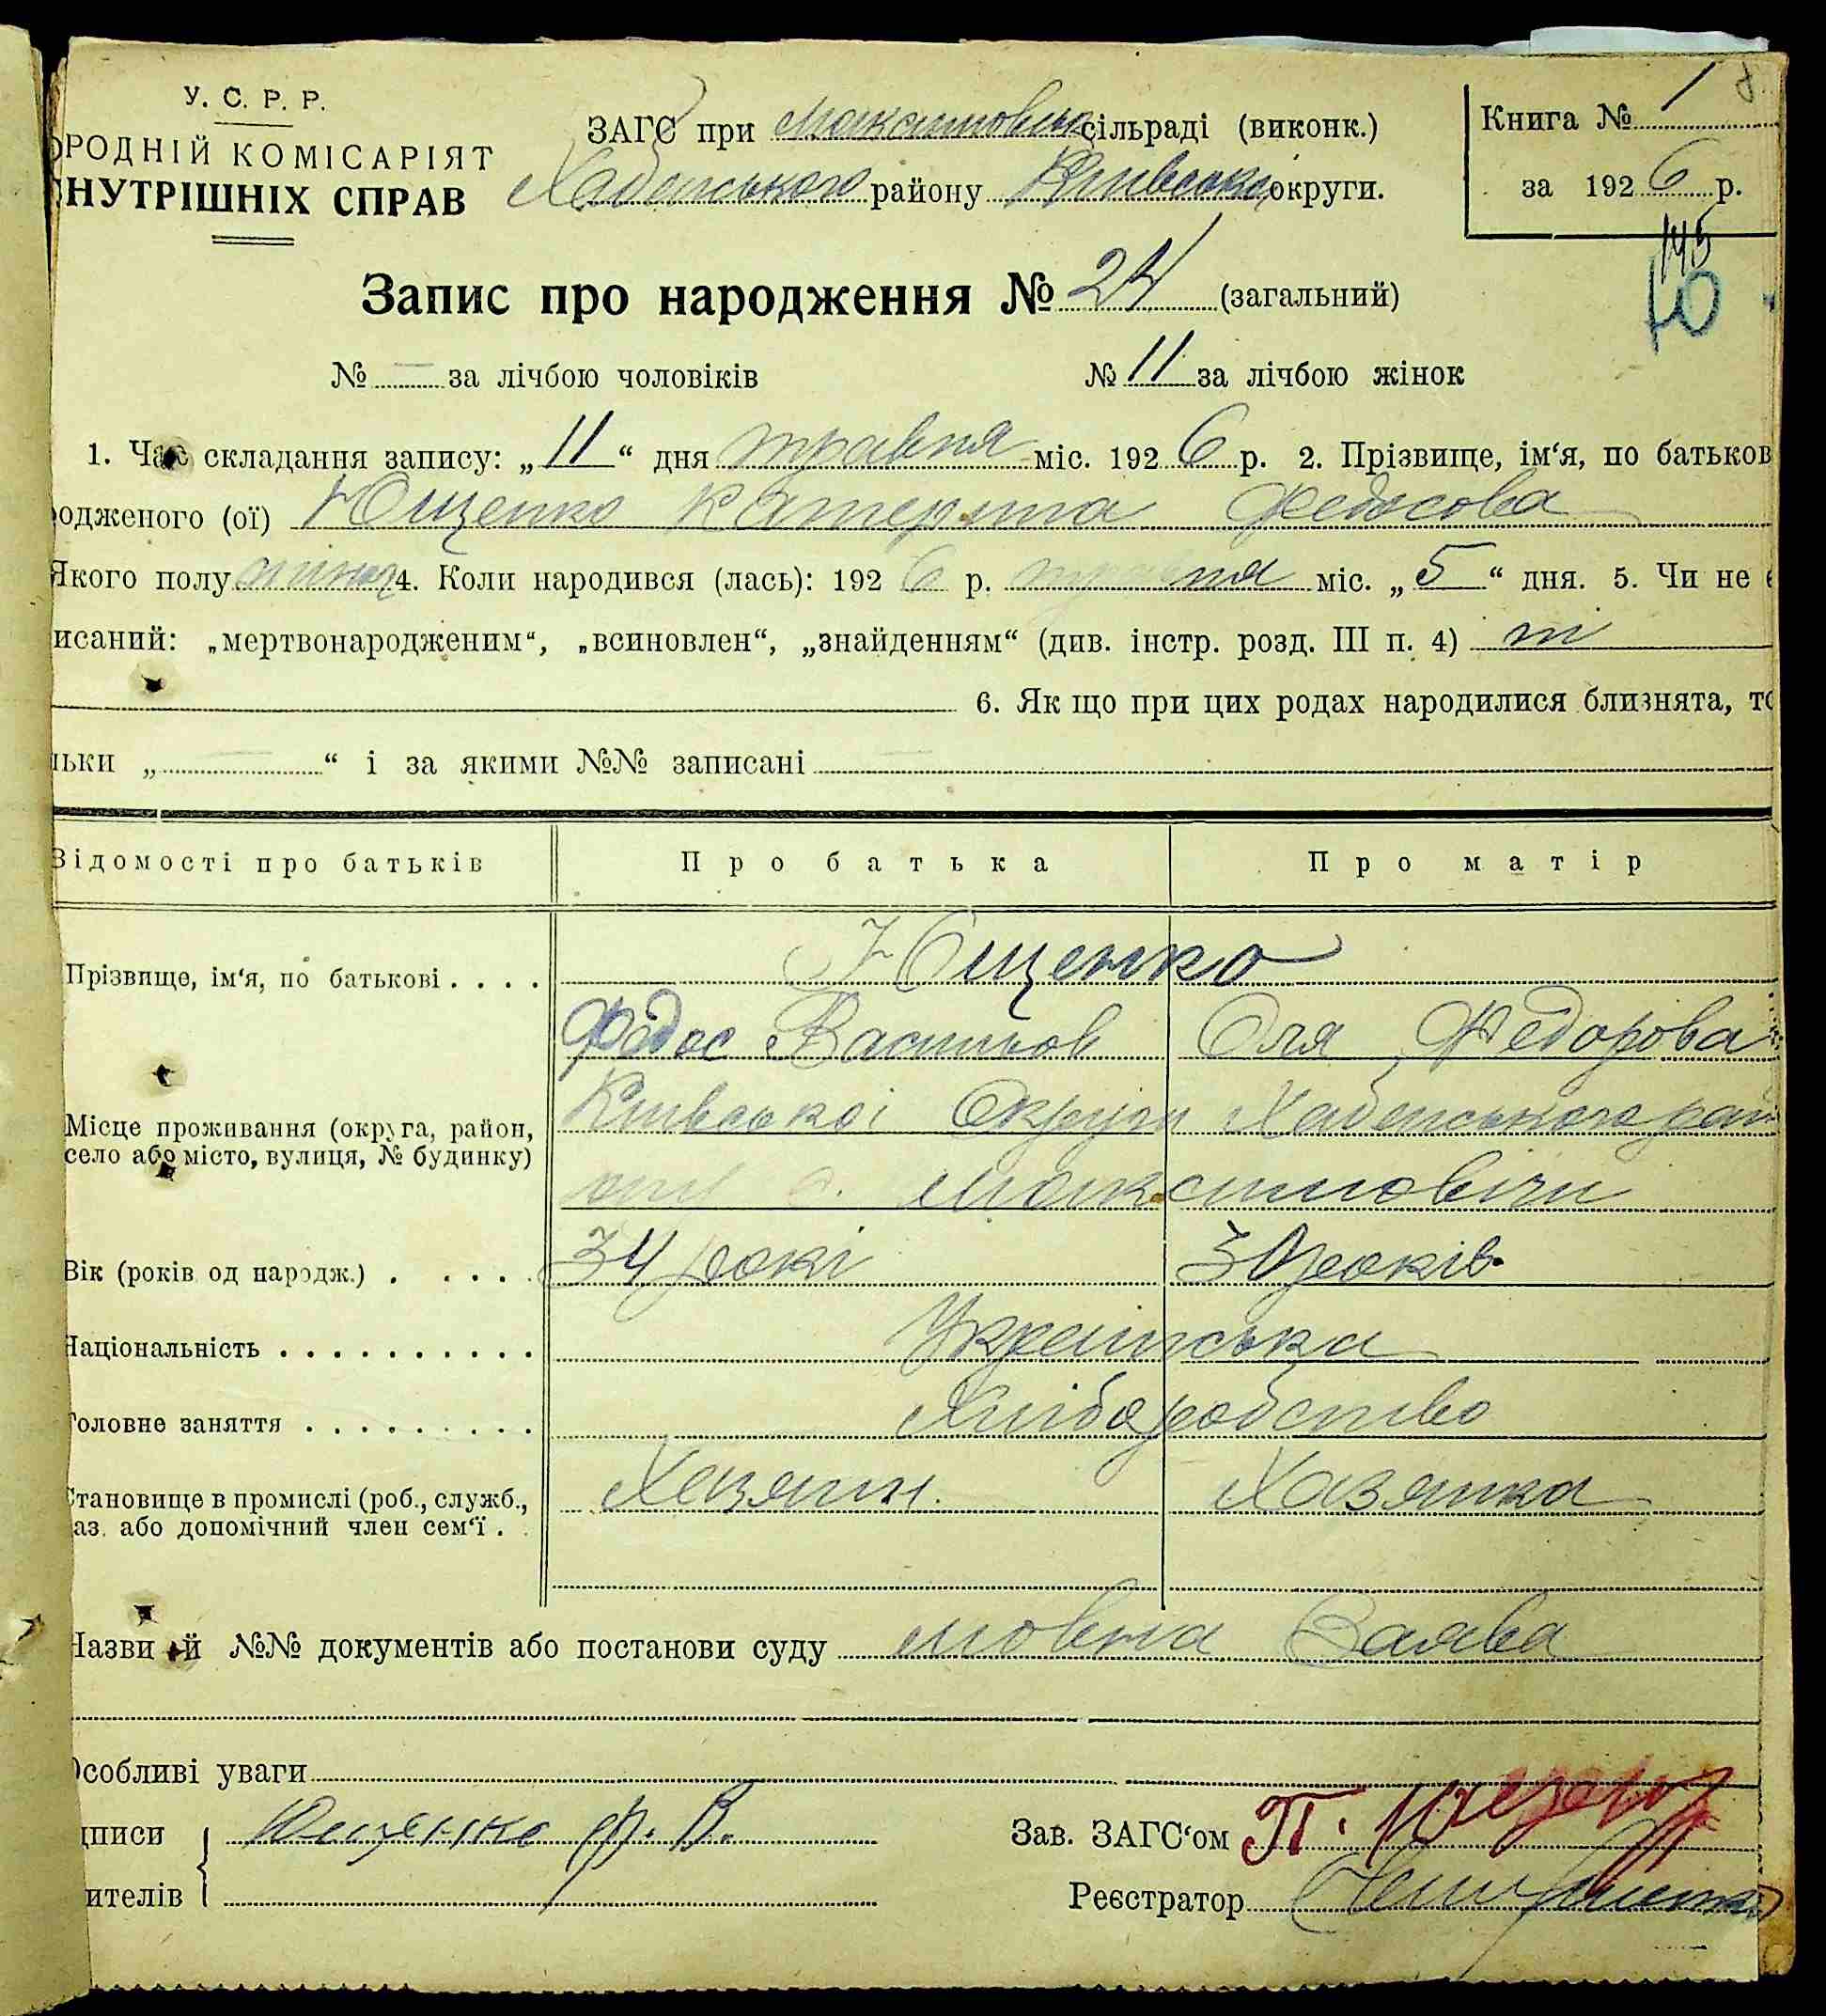 У. С. Р. Р.
РОДНІЙ КОМІСАРІЯТ
НУТРІШНІХ СПРАВ
ЗАГС при сільраді (виконк.)
Хабенського району Київської округи.
Книга № 1
за 1926 р.
145
Ю
Запис про народження № 24 (загальний)
№ — за лічбою чоловіків
№ 11 за лічбою жінок
1. Час складання запису: „11“ дня травня міс. 1926 р. 2. Прізвище, ім‘я, по батьков
одженого (ої) Ющенко Катерина Федосова
Якого полу 4. Коли народився (лась): 1926 р. травня міс. „5“ дня. 5. Чи не є
исаний: „мертвонародженим“, „всиновлен“, „знайденням“ (див. інстр. розд. III п. 4) ні
6. Як що при цих родах народилися близнята, то
льки „—“ і за якими №№ записані —
Відомості про батьків
Про батька
Про матір
Прізвище, ім‘я, по батькові . . . .
Ющенко
Федос Василіов
Оля Федорова
Місце проживання (округа, район, село або місто, вулиця, № будинку)
Київської Округи Хабенського рай
ону с. Максимовичи
Вік (років од народж.) . . . . .
34 рокі
30 років
Національність . . . . . . . . . .
Українська
Головне заняття . . . . . . . . .
Хліборобство
Становище в промислі (роб., служб.,
аз. або допомічний член сем‘ї . .
Хазяин.
Хазяика
Назви й №№ документів або постанови суду мовна Заява
Особливі уваги
дписи
Ющенко Ф. В.
ителів
Зав. ЗАГС‘ом П.
Реєстратор